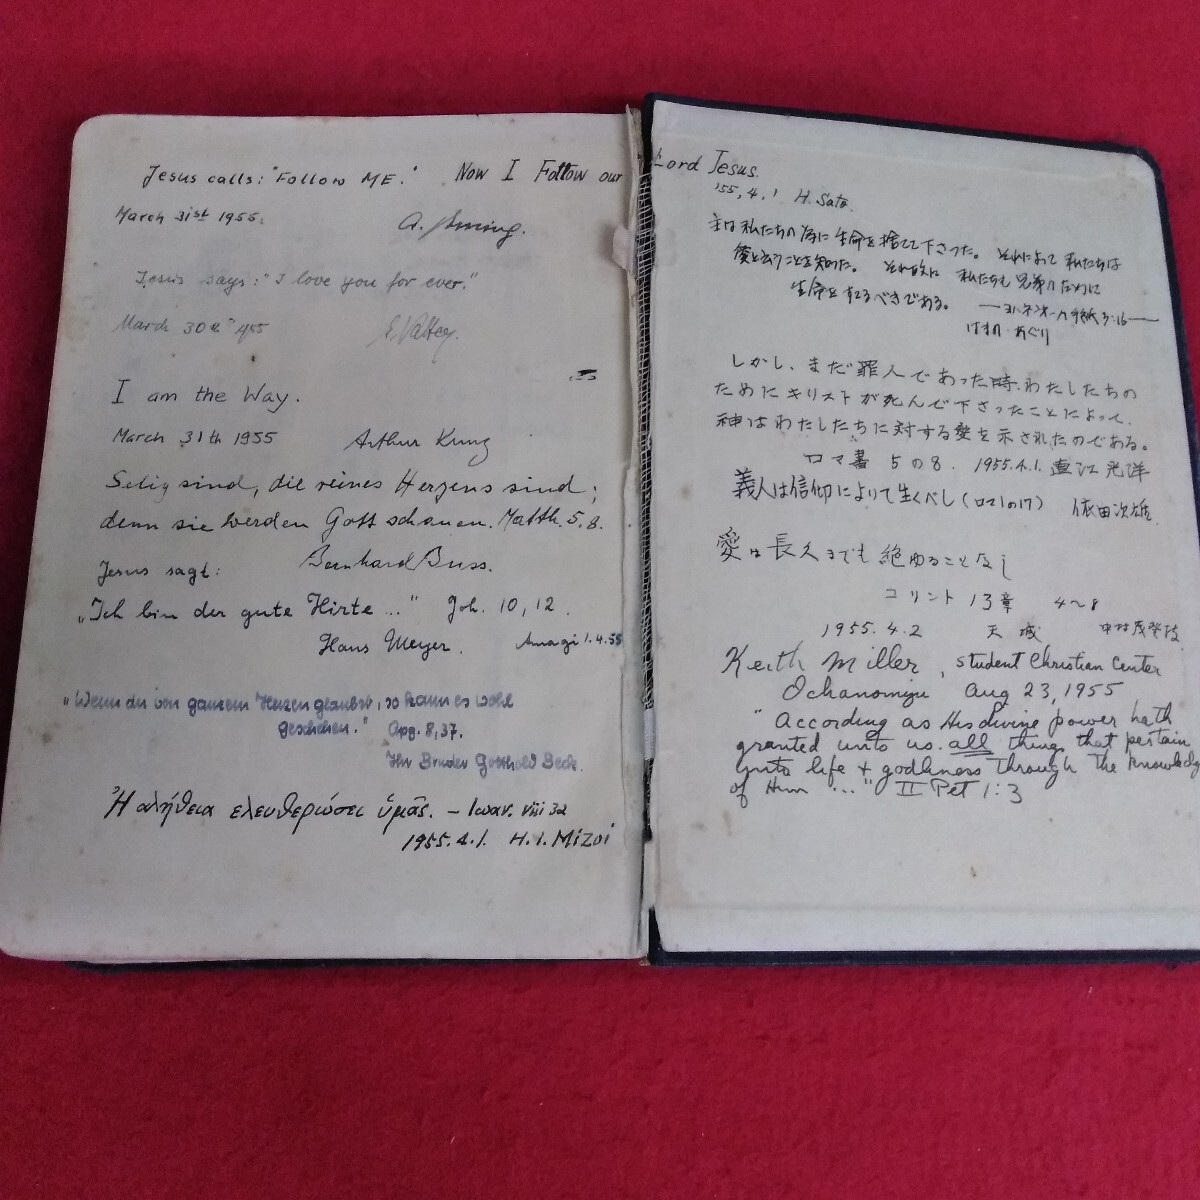 Jesus calls: "Follow ME." Now I Follow our
March 31st 1955.
A.
Jesus says: "I love you for ever."
March 30th 1955
I am the Way.
March 31th 1955 Arthur Kunz
Selig sind, die reines Herzens sind;
denn sie werden Gott schauen. Matth. 5,8.
Bernhard Buss.
Jesus sagt:
"Ich bin der gute Hirte..." Joh. 10, 12.
Hans Meyer. Amagi 1.4.55
"Wenn du von ganzem Herzen glaubst, so kann es wohl
geschehen." Apg. 8,37.
Ihr Bruder Gotthold Beck.
Ἡ αλήθεια ελευθερώσει ὑμᾶς. – Ιωαν. viii 32
1955.4.1. H.I. Mizoi
Lord Jesus.
'55, 4, 1 H. Sato.
主は私たちの為に生命を捨てて下さった。それによって私たちは
愛と云うことを知った。それ故に 私たちも兄弟のために
生命をすてるべきである。 ―ヨハネ第一の手紙3:16―
あぐり
しかし、まだ罪人であった時、わたしたちの
ためにキリストが死んで下さったことによって、
神はわたしたちに対する愛を示されたのである。
ロマ書 5の8. 1955.4.1. 直江
義人は信仰によりて生くべし(ロマ1の17) 依田次雄
愛は長久までも絶ゆることなし
コリント 13章 4~8
1955.4.2 天城 中村
Keith Miller, Student Christian Center
Ochanomizu Aug 23, 1955
"According as His divine power hath
granted unto us all things that pertain
unto life + godliness through the knowledge
of Him ..." II Pet 1:3